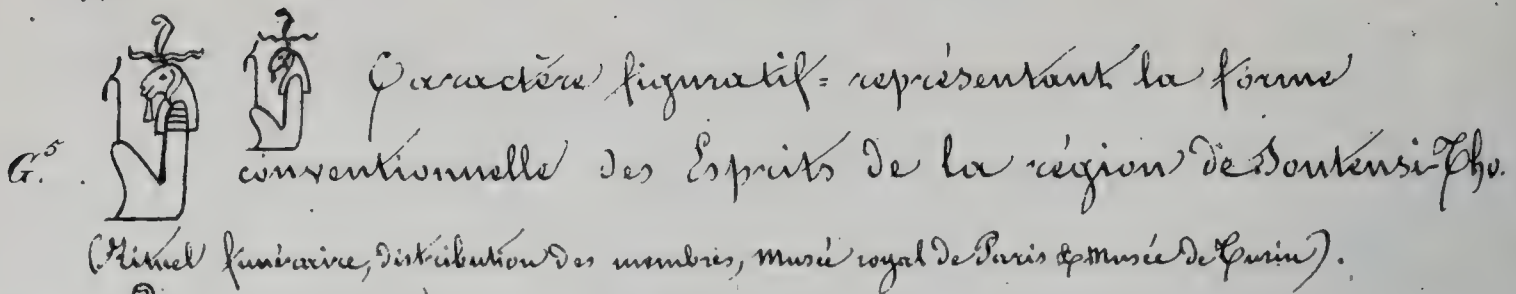 Caractère figuratif= représentant la forme
G.⁵ conventionnelle des Esprits de la région de Soutensi-Tho.
(Rituel funéraire, distribution des membres, musée royal de Paris & musée de Turin).